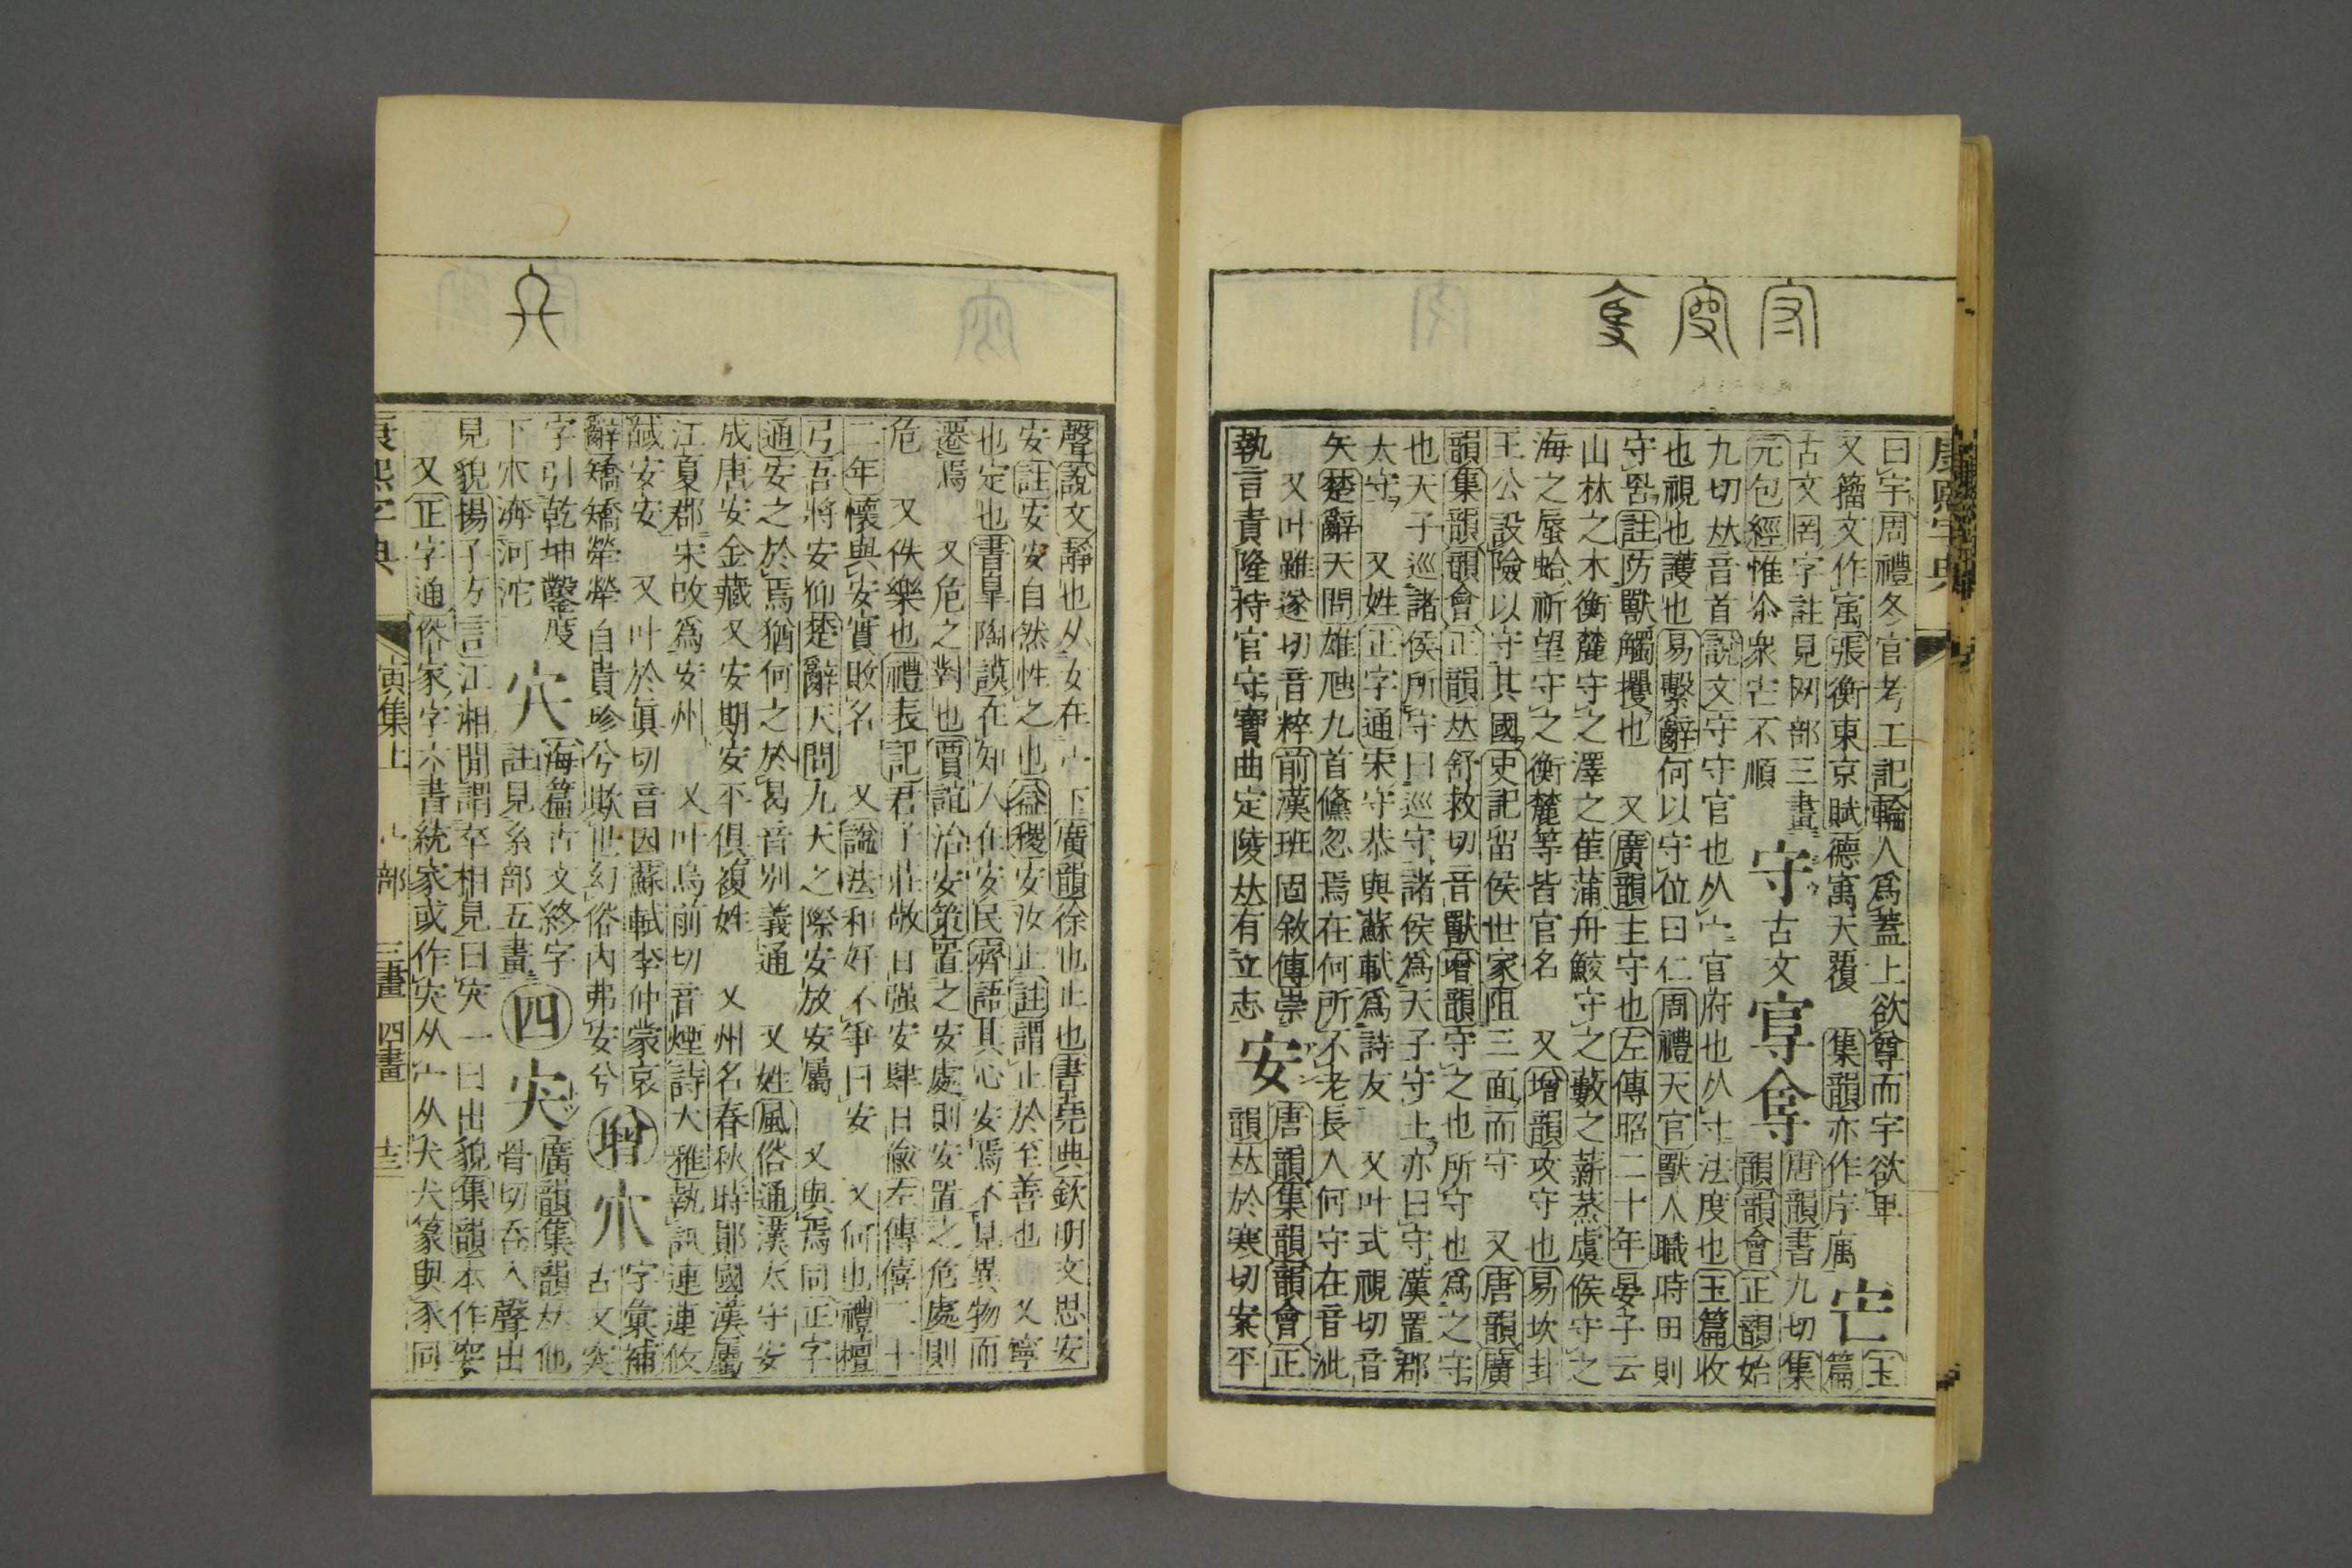 康熙字典
曰宇周禮冬官考工記輪人爲蓋上欲尊而宇欲卑
又籀文作㝢張衡東京賦德㝢天覆 集韻亦作㡰庽 宀 玉篇
古文罔字註見网部三畫
元包經惟㑹衆𡧇不順
守 古文 𡬲 𡬴
唐韻書九切集韻韻會正韻始
九切𠀤音首說文守守官也从宀官府也从寸法度也玉篇收
也視也護也易繫辭何以守位曰仁周禮天官獸人職時田則
守罟註防獸觸攫也 又廣韻主守也左傳昭二十年晏子云
山林之木衡麓守之澤之萑蒲舟鮫守之藪之薪蒸虞候守之
海之蜃蛤祈望守之衡麓等皆官名 又增韻攻守也易坎卦
王公設險以守其國史記留侯世家阻三面而守 又唐韻廣
韻集韻韻會正韻𠀤舒救切音獸增韻守之也所守也爲之守
也天子巡諸侯所守曰巡守諸侯爲天子守土亦曰守漢置郡
太守 又姓正字通宋守恭與蘇軾爲詩友 又叶式視切音
矢楚辭天問雄虺九首儵忽焉在何所不老長人何守在音泚
又叶雖遂切音粹前漢班固敘傳崇
執言責隆持官守寶曲定陵𠀤有立志
安 唐韻集韻韻會正
韻𠀤於寒切案平
聲說文靜也从女在宀下廣韻徐也止也書堯典欽明文思安
安註安安自然性之也益稷安汝止註謂止於至善也 又寧
也定也書皐陶謨在知人在安民齊語其心安焉不見異物而
遷焉 又危之對也賈誼治安策置之安處則安置之危處則
危 又佚樂也禮表記君子莊敬日强安肆日偸左傳僖二十
二年懷與安實敗名 又諡法和好不爭曰安 又何也禮檀
弓吾將安仰楚辭天問九天之際安放安屬 又與焉同正字
通安之於焉猶何之於曷音別義通 又姓風俗通漢太守安
成唐安金藏又安期安平俱複姓 又州名春秋時鄖國漢屬
江夏郡宋攺爲安州 又叶烏前切音煙詩大雅執訊連連攸
馘安安 又叶於眞切音因蘇軾李仲蒙哀
辭矯矯犖犖自貴珍兮欺世幻俗內弗安兮
增 𡧁 字彙補
古文突
字引乾坤鑿度
下𡧁濟河沱
穴 海篇古文終字
註見糸部五畫
四 𡧤 廣韻集韻𠀤他
骨切吞入聲出
見貌揚子方言江湘閒謂卒相見曰𡧤一曰出貌集韻本作突
又正字通俗家字六書統家或作𡧤从宀从犬犬篆與豕同
康熙字典 寅集上 宀部 三畫 四畫 十三